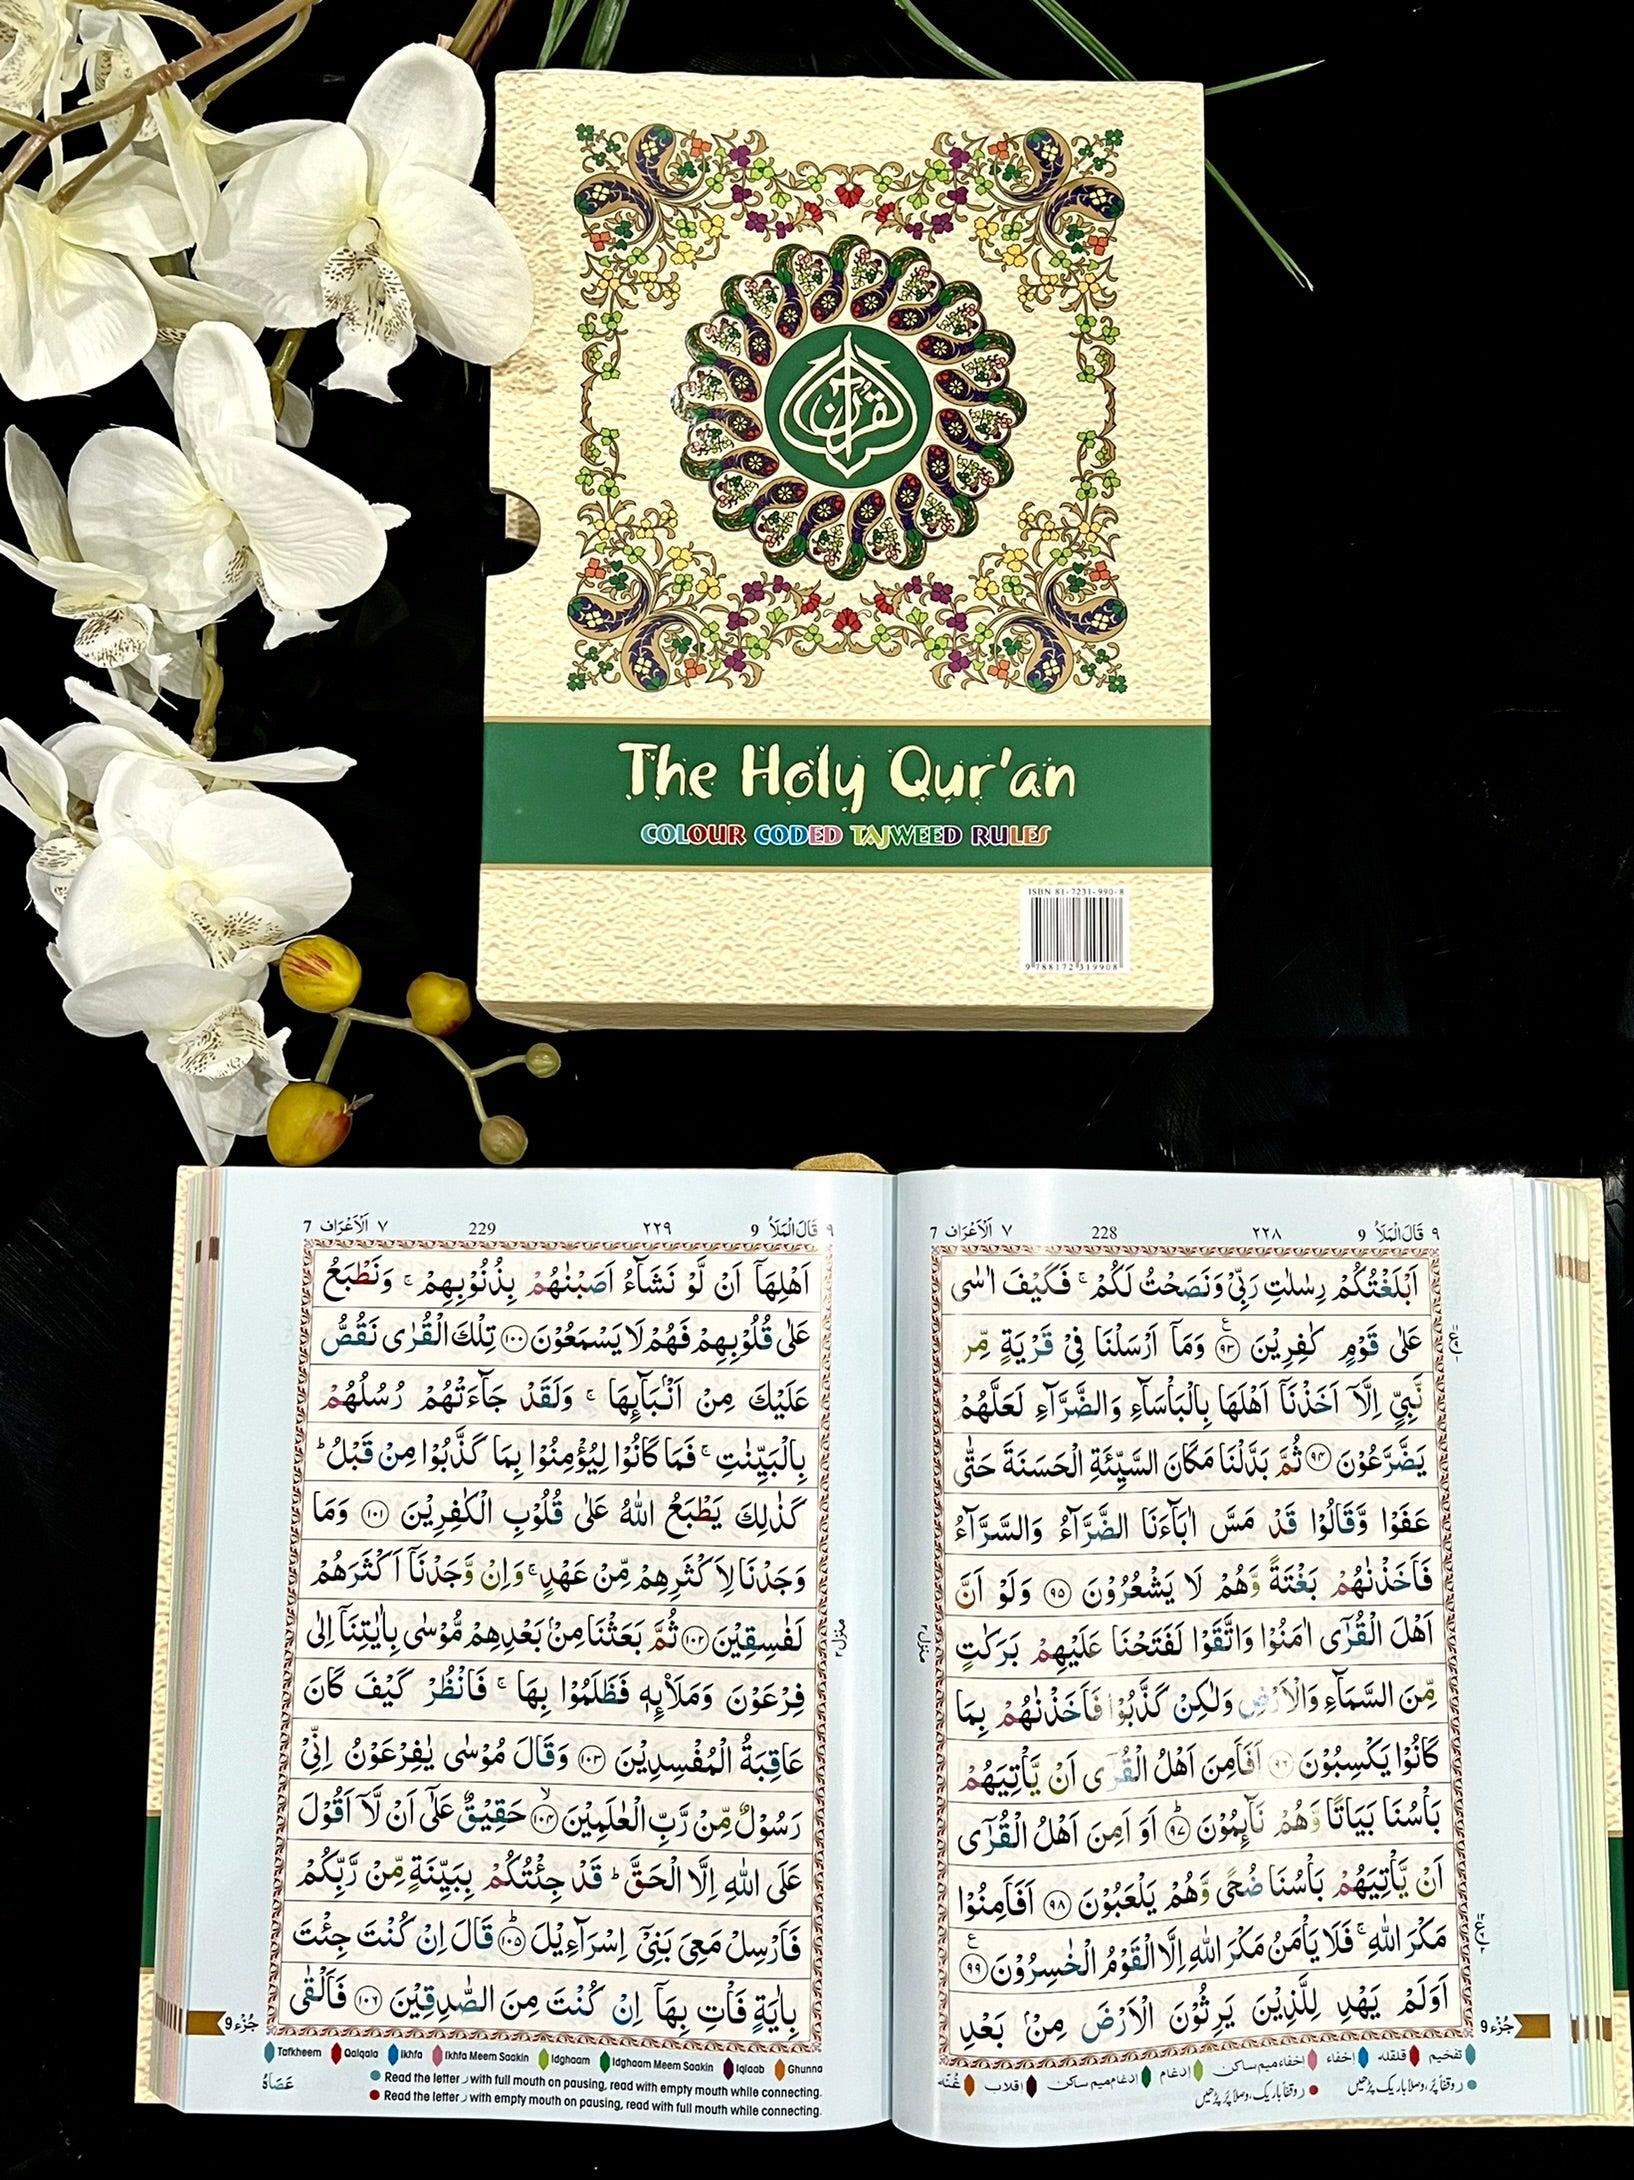 القرآن
The Holy Qur'an
COLOUR CODED TAJWEED RULES
ISBN 81-7231-990-8
9 788172 319908
٩ قَالَ الْمَلَاُ 9 ٢٢٨ 228 ٧ اَلْاَعْرَاف 7
اَبْلَغْتُكُمْ رِسٰلٰتِ رَبِّىْ وَنَصَحْتُ لَكُمْ ۚ فَكَيْفَ اٰسٰى
عَلٰى قَوْمٍ كٰفِرِيْنَ ۩٩٣ وَمَاۤ اَرْسَلْنَا فِىْ قَرْيَةٍ مِّنْ
نَّبِىٍّ اِلَّاۤ اَخَذْنَاۤ اَهْلَهَا بِالْبَاْسَآءِ وَالضَّرَّآءِ لَعَلَّهُمْ
يَضَّرَّعُوْنَ ٩٤ ثُمَّ بَدَّلْنَا مَكَانَ السَّيِّئَةِ الْحَسَنَةَ حَتّٰى
عَفَوْا وَّقَالُوْا قَدْ مَسَّ اٰبَآءَنَا الضَّرَّآءُ وَالسَّرَّآءُ
فَاَخَذْنٰهُمْ بَغْتَةً وَّهُمْ لَا يَشْعُرُوْنَ ٩٥ وَلَوْ اَنَّ
اَهْلَ الْقُرٰٓى اٰمَنُوْا وَاتَّقَوْا لَفَتَحْنَا عَلَيْهِمْ بَرَكٰتٍ
مِّنَ السَّمَآءِ وَالْاَرْضِ وَلٰكِنْ كَذَّبُوْا فَاَخَذْنٰهُمْ بِمَا
كَانُوْا يَكْسِبُوْنَ ٩٦ اَفَاَمِنَ اَهْلُ الْقُرٰٓى اَنْ يَّاْتِيَهُمْ
بَاْسُنَا بَيَاتًا وَّهُمْ نَآئِمُوْنَ ؕ٩٧ اَوَ اَمِنَ اَهْلُ الْقُرٰٓى
اَنْ يَّاْتِيَهُمْ بَاْسُنَا ضُحًى وَّهُمْ يَلْعَبُوْنَ ٩٨ اَفَاَمِنُوْا
مَكْرَ اللّٰهِ ۚ فَلَا يَاْمَنُ مَكْرَ اللّٰهِ اِلَّا الْقَوْمُ الْخٰسِرُوْنَ ٩٩ ع
اَوَلَمْ يَهْدِ لِلَّذِيْنَ يَرِثُوْنَ الْاَرْضَ مِنْۢ بَعْدِ
جُزْء 9
منزل ٢
تفخيم قلقله اِخفاء اِخفاء ميم ساكن اِدغام اِدغام ميم ساكن اقلاب غُنّه
ر وقفاً پُر، وصلاً باریک پڑھیں ر وقفاً باریک، وصلاً پُر پڑھیں
٩ قَالَ الْمَلَاُ 9 ٢٢٩ 229 ٧ اَلْاَعْرَاف 7
اَهْلِهَاۤ اَنْ لَّوْ نَشَآءُ اَصَبْنٰهُمْ بِذُنُوْبِهِمْ ۚ وَنَطْبَعُ
عَلٰى قُلُوْبِهِمْ فَهُمْ لَا يَسْمَعُوْنَ ١٠٠ تِلْكَ الْقُرٰى نَقُصُّ
عَلَيْكَ مِنْ اَنْۢبَآئِهَا ۚ وَلَقَدْ جَآءَتْهُمْ رُسُلُهُمْ
بِالْبَيِّنٰتِ ۚ فَمَا كَانُوْا لِيُؤْمِنُوْا بِمَا كَذَّبُوْا مِنْ قَبْلُ ؕ
كَذٰلِكَ يَطْبَعُ اللّٰهُ عَلٰى قُلُوْبِ الْكٰفِرِيْنَ ١٠١ وَمَا
وَجَدْنَا لِاَكْثَرِهِمْ مِّنْ عَهْدٍ ۚ وَاِنْ وَّجَدْنَاۤ اَكْثَرَهُمْ
لَفٰسِقِيْنَ ١٠٢ ثُمَّ بَعَثْنَا مِنْۢ بَعْدِهِمْ مُّوْسٰى بِاٰيٰتِنَاۤ اِلٰى
فِرْعَوْنَ وَمَلَا۟ئِهٖ فَظَلَمُوْا بِهَا ۚ فَانْظُرْ كَيْفَ كَانَ
عَاقِبَةُ الْمُفْسِدِيْنَ ١٠٣ وَقَالَ مُوْسٰى يٰفِرْعَوْنُ اِنِّىْ
رَسُوْلٌ مِّنْ رَّبِّ الْعٰلَمِيْنَ ۙ١٠٤ حَقِيْقٌ عَلٰٓى اَنْ لَّاۤ اَقُوْلَ
عَلَى اللّٰهِ اِلَّا الْحَقَّ ؕ قَدْ جِئْتُكُمْ بِبَيِّنَةٍ مِّنْ رَّبِّكُمْ
فَاَرْسِلْ مَعِىَ بَنِىْۤ اِسْرَآءِيْلَ ؕ١٠٥ قَالَ اِنْ كُنْتَ جِئْتَ
بِاٰيَةٍ فَاْتِ بِهَاۤ اِنْ كُنْتَ مِنَ الصّٰدِقِيْنَ ١٠٦ فَاَلْقٰى
جُزْء 9
منزل ٢
Tafkheem Qalqala Ikhfa Ikhfa Meem Saakin Idghaam Idghaam Meem Saakin Iqlaab Ghunna
Read the letter ر with full mouth on pausing, read with empty mouth while connecting.
Read the letter ر with empty mouth on pausing, read with full mouth while connecting.
عَصَاهُ